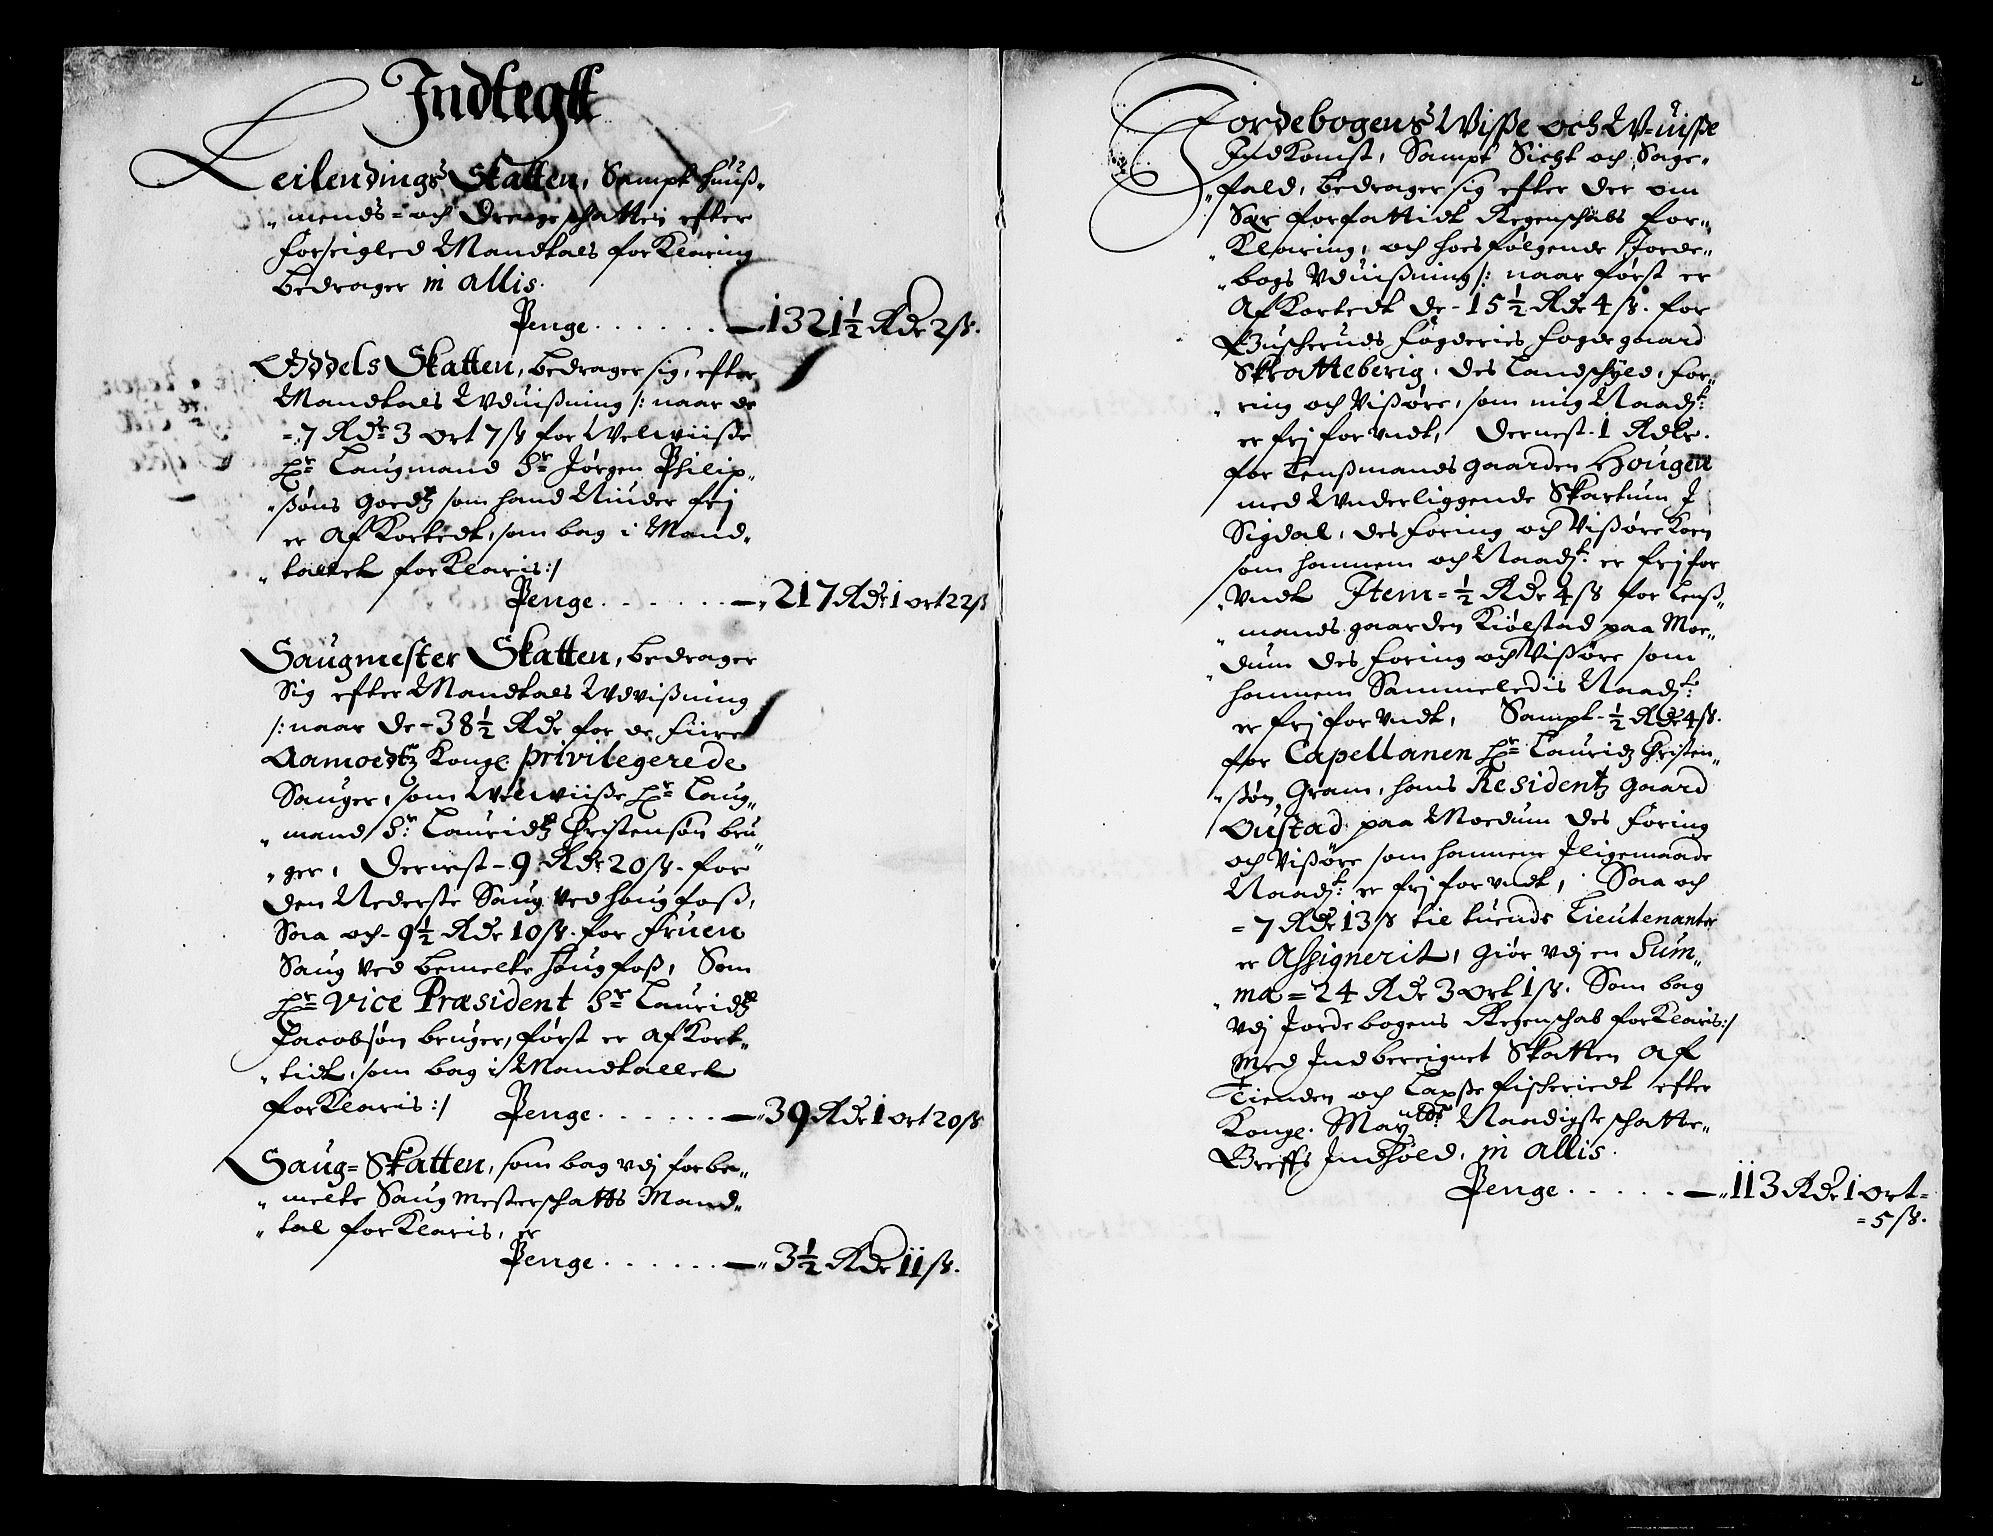 Indtegtt
Leilendings Skatten, Sampt huuß„
„mends= och drenge schatten efter
forseigled Mandtals forklaring
bedrager in allis.
Penge . . . . . . — „1321½ Rdr 2 ß.
Oddels Skatten, bedrager sig, efter
Mandtals Udvißning /: naar de
= 7 Rdr 3 ort 7 ß for Welwiiße
Hr Laugmand Sr Jørgen Philip„
„ßøns Godtz som hand Niuder frj
er Afkortedt, som bag i Mand„
„tallet forklaris :/
Penge . . . . . . — „217 Rdr 1 ort 22 ß
Saugmester Skatten, bedrager
Sig efter Mandtals Udvißning
/: naar de - 38½ Rdr for de fiire
Aamoedtz Kongl. privilegerede
Sauger, som Welwiiße Hr Laug„
„mand Sr. Lauridtz Christensøn bru„
„ger, Dernest - 9 Rdr 20 ß. for
den Nederste Saug ved Hougfoß,
Saa och - 9½ Rdr 10 ß. for fruen
Saug ved bemelte Hougfoß, Som
Hr Vice Præsident Sr Lauridtz
Jacobsøn bruger, først er afkort„
„tidt, som bag i Mandtallet
forklaris :/ Penge . . . . . . — „39 Rdr 1 ort 20 ß
Saug= Skatten, som bag vdj forbe„
„melte Saugmesterschatts Mand„
„tal forklaris, er
Penge . . . . . . — „3½ Rdr 11 ß.
2
Jordebogens Wiße och W-uiße
Indkomst, Sampt Sicht och Sage„
„fald, bedrager sig efter der om
Sær forfattidt Regenschabs for„
„klaring, och hoes følgende Jorde„
„bogs Vduißning /: naar først er
Afkortedt de - 15½ Rdr 4 ß. for
Buscheruds fogderies fogde gaard
Skratteberig, des Landschyld, for„
„ring och Vißøre, som mig Naadt.
er frj forundt, Dernest - 1 Rdlr.
for Lenßmands gaarden Hougen
med Underliggende Skartum J
Sigdal, des foring och Vißøre Korn
som hannem och Naadt. er frj for
„undt Item = ½ Rdr 4 ß for Lenß„
„mands gaarden Kiølstad paa Moe„
„dum des foring och Vißøre som
hannem Sammeledis Naadt.
er frj forundt, Sampt - ½ Rdr 4 ß.
for Capellanen Hr Lauridtz Christen„
„ßøn Gram, hans Residentz gaard
Oustad paa Moedum des foring
och Vißøre som hannem Iligemaade
Naadt. er frj forundt, Saa och
= 7 Rdr 13 ß til tuende Lieutenanter
er Assignerit, giør vdj en Sum„
„ma = 24 Rdr 3 ort 1 ß. Som bag
vdj Jordebogens Regenschab forklaris :/
Med Indbereignet Skatten af
Tienden och Laxße fischeriedt efter
Kongl. Maytts Naadigste schatte„
Breffs Indhold, in allis.
Penge . . . . . — „113 Rdr 1 ort =
= 5 ß.